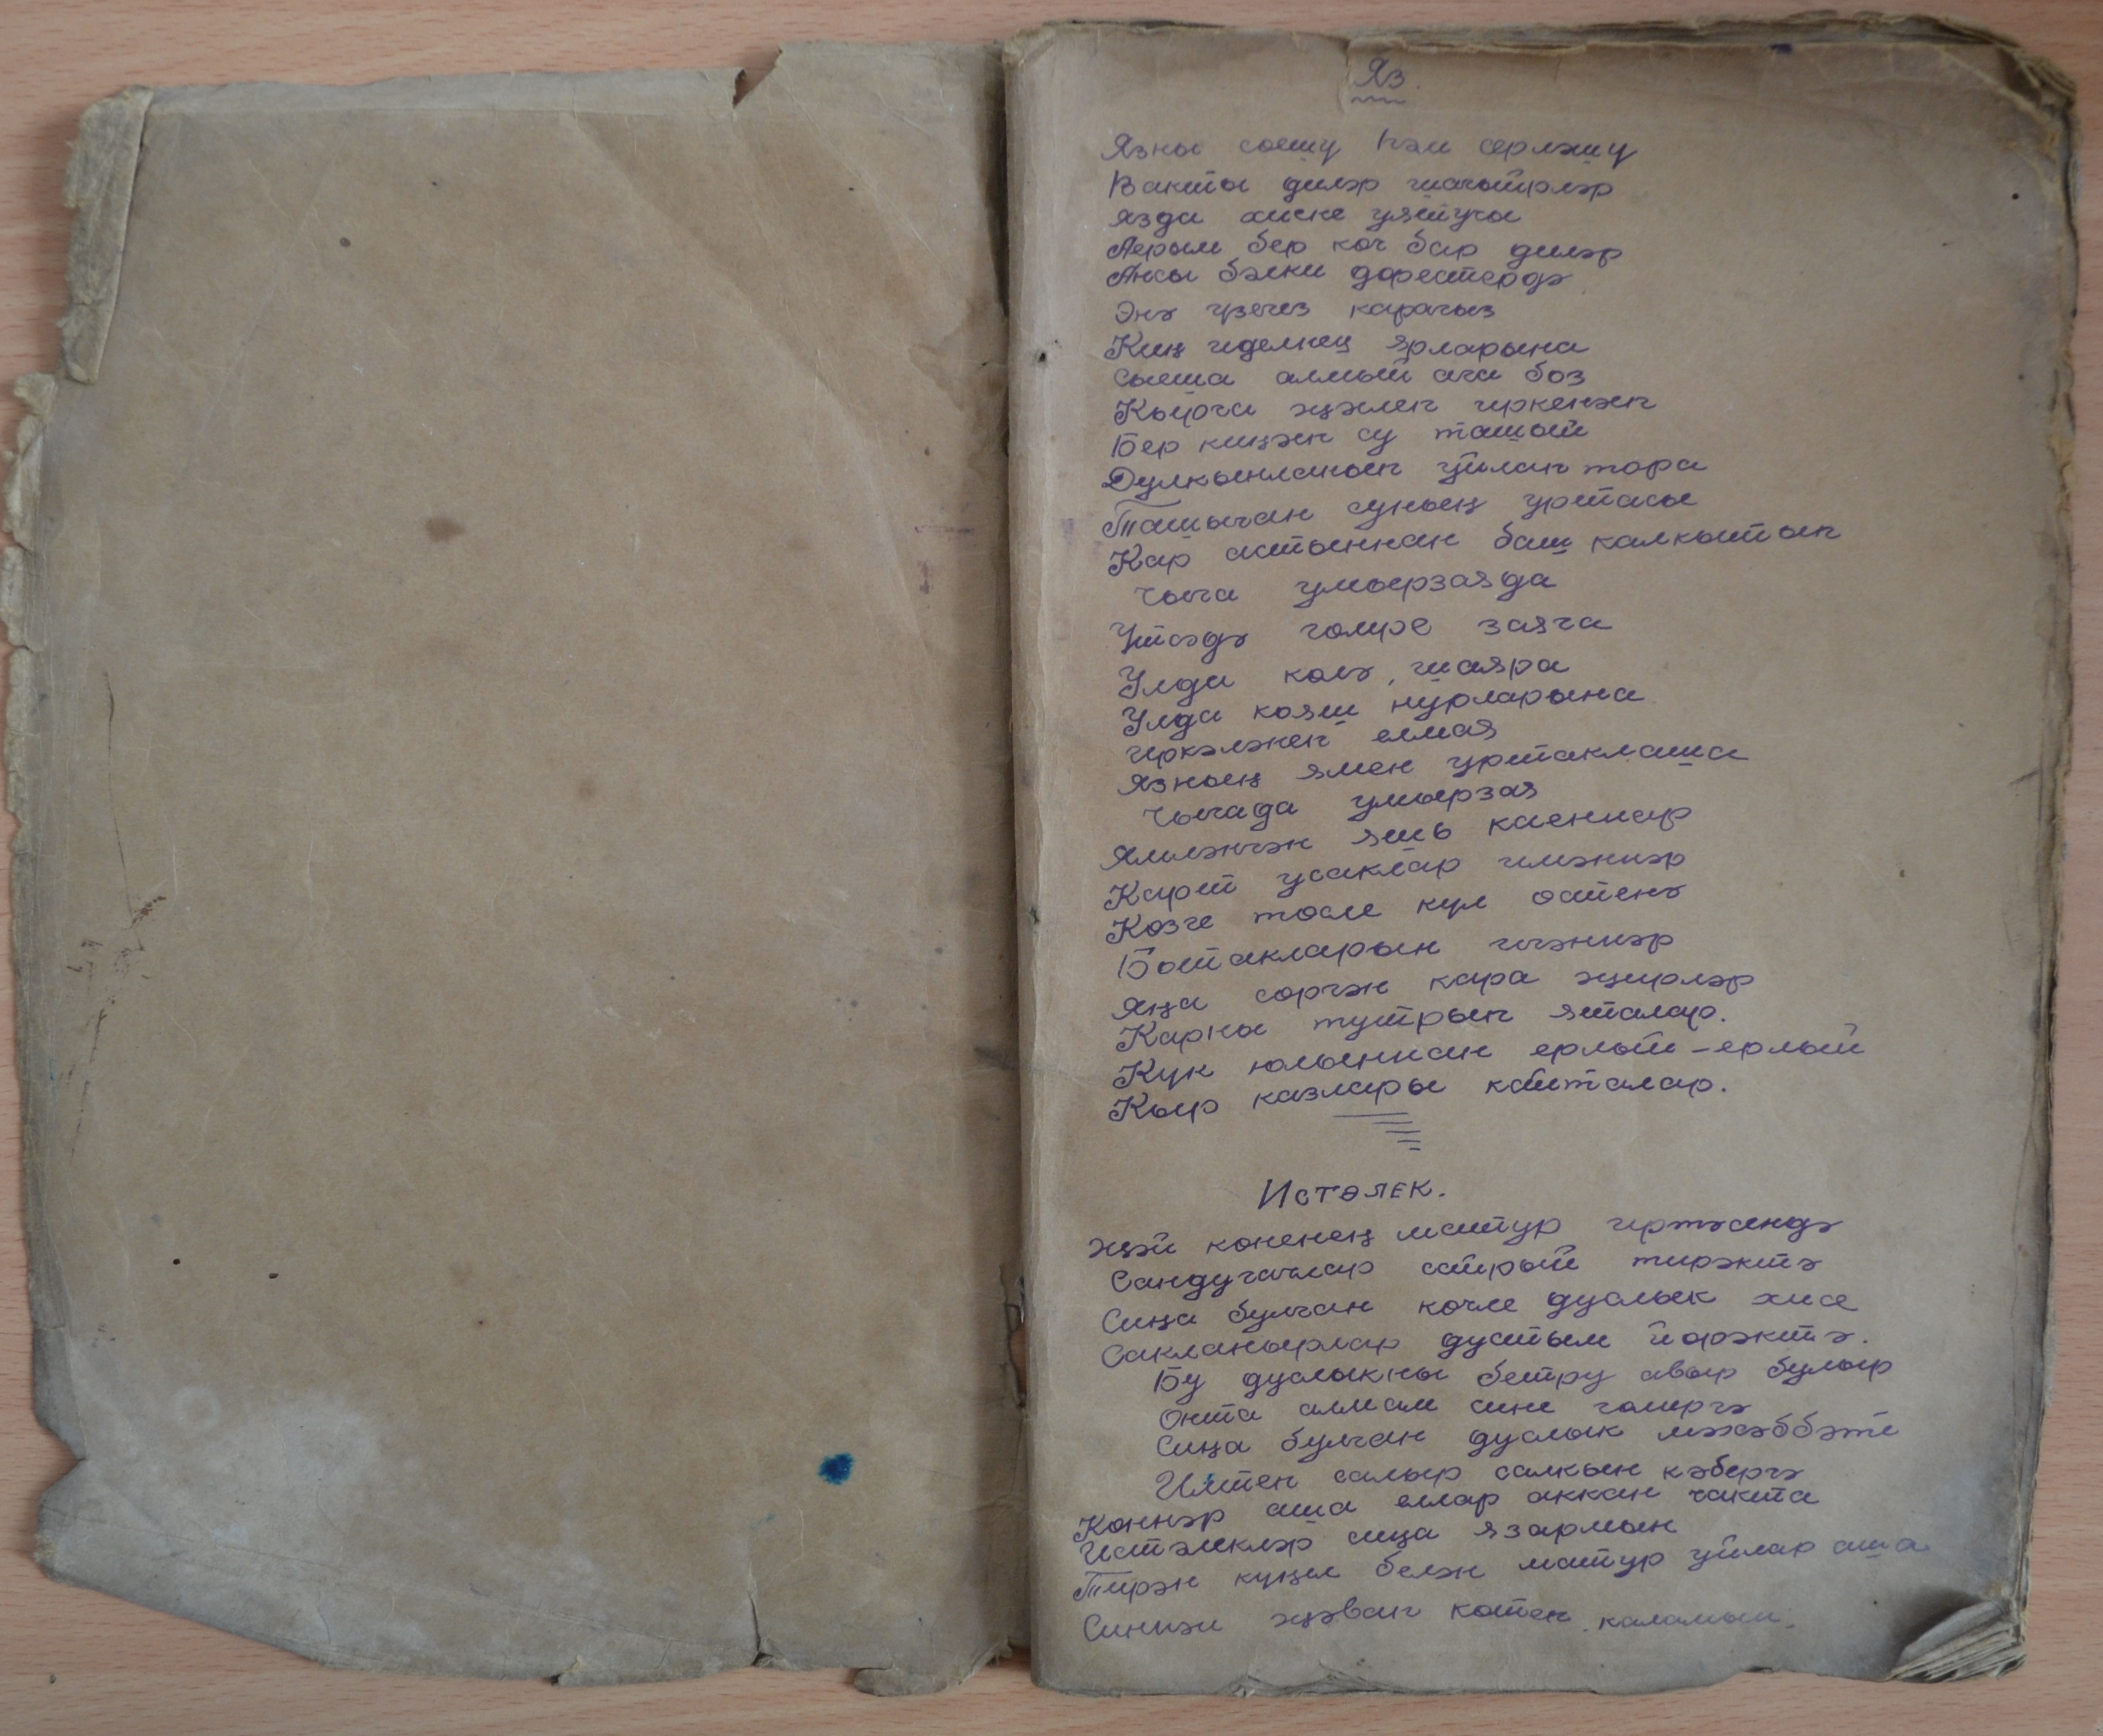 Яз.
Язны сөешү һәм серләшү
Вакты диләр шагыйрләр
Язда хиске уятучы
Аерым бер көч бар диләр
Ансы бәлки дөрестердә
Энә үзегез карагыз
Киң иделнең ярларына
Сыеша алмый ага боз
Кырга җәелеп иркенләп
Бер киңәеп су ташый
Дулкынланып уйлап тора
Ташыган суның уртасы
Кар астыннан баш калкытып
Чыга умырзаяда
Үтсәдә гомре заяга
Улда көлә, шаяра
Улда кояш нурларына
Иркәләнеп елмая
Язның ямен уртаклаша
Чыгада умырзая
Ямләнгән яшь каеннар
Карт усаклар имәннәр
Көзге төсле күл өстенә
Ботакларын игәннәр
Яңа сөргән кара җирләр
Карны тутрып яталар.
Күк юлыннан ерлый-ерлый
Кыр казлары кайталар.
Истәлек.
Җәй көненең матур иртәсендә
Сандугачлар сайрый тирәктә
Сиңа булган көчле дуслык хисе
Сакланырлар дустым йөрәктә.
Бу дуслыкны бетрү авыр булыр
Онта алмам сине гомергә
Сиңа булган дуслык мәхәббәте
Илтеп салыр салкын кәбергә
Көннәр аша еллар аккан чакта
Истәлекләр сиңа язармын
Тирән күңел белән матур уйлар аша
Синнән җәвап көтеп каламын.